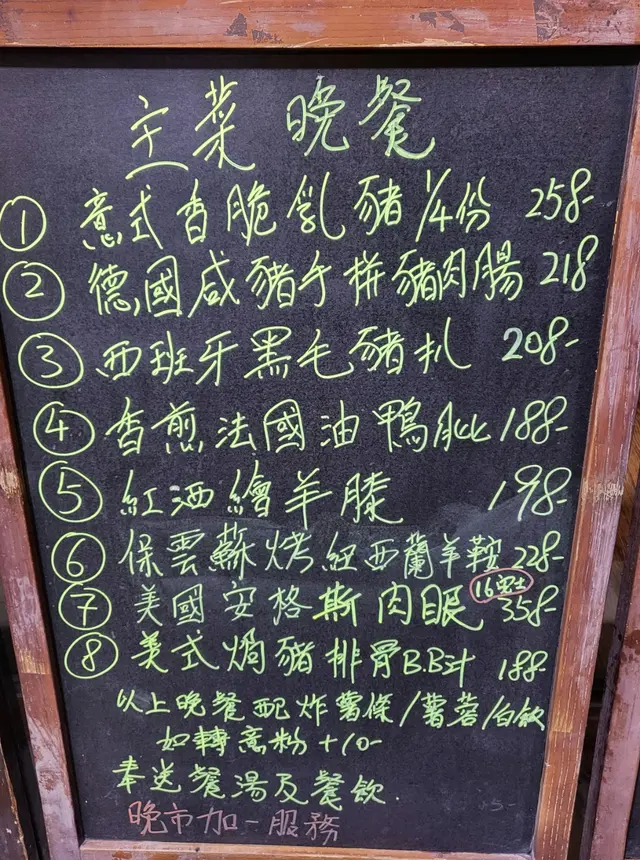 主菜 晚餐
① 意式香脆乳豬 1/4份 258-
② 德國咸豬手拼豬肉腸 218
③ 西班牙黑毛豬扒 208-
④ 香煎法國油鴨肶 188-
⑤ 紅酒繪羊膝 198-
⑥ 保雲蘇烤紐西蘭羊鞍 228-
⑦ 美國安格斯肉眼 16安士 358-
⑧ 美式焗豬排骨B.B汁 188-
以上晚餐配炸薯條/薯蓉/白飯
如轉意粉+10-
奉送餐湯及餐飲
晚市加一服務